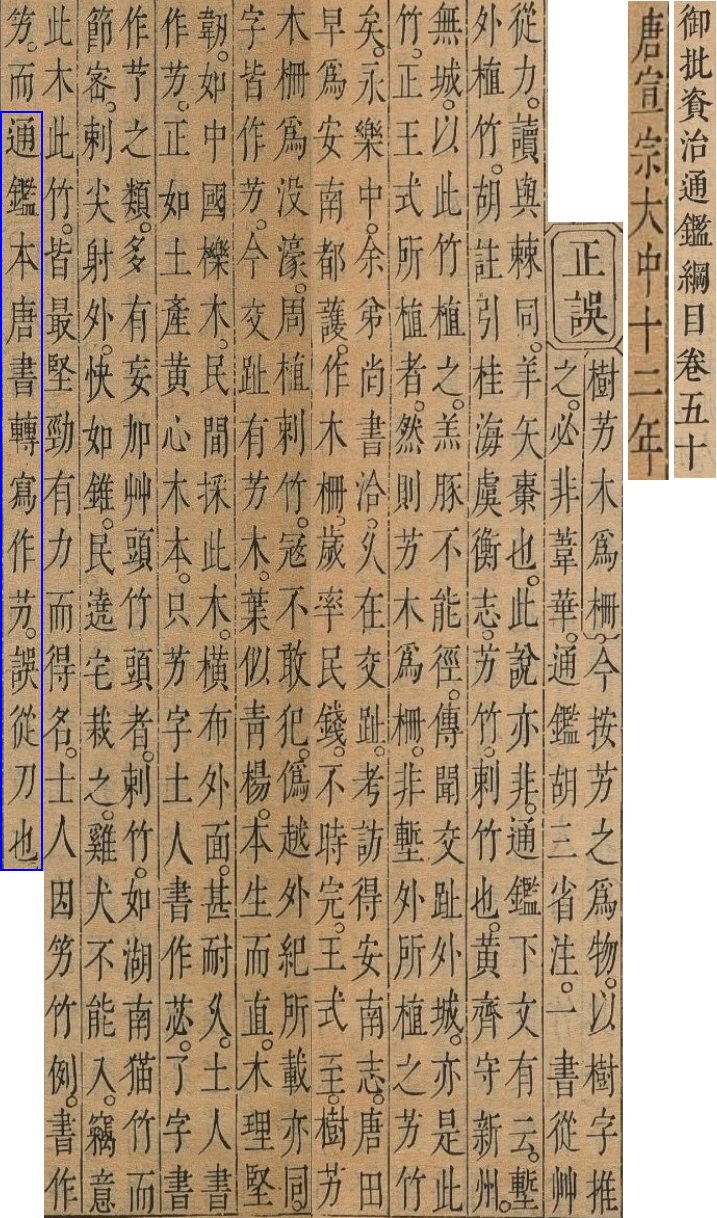 御批資治通鑑綱目卷五十
唐宣宗大中十二年
正誤
樹芀木爲柵 今按芀之爲物。以樹字推
之。必非葦華。通鑑胡三省注。一書從艸
從力。讀與棘同。羊矢棗也。此說亦非。通鑑下文有云。塹
外植竹。胡註引桂海虞衡志。芀竹。刺竹也。黃齊守新州。
無城。以此竹植之。羔豚不能徑。傳聞交趾外城。亦是此
竹。正王式所植者。然則芀木爲柵。非塹外所植之芀竹
矣。永樂中。余弟尚書洽。久在交趾。考訪得安南志。唐田
早爲安南都護。作木柵。歲率民錢。不時完。王式至。樹芀
木柵爲没濠。周植刺竹。冦不敢犯。僞越外紀所載亦同。
字皆作芀。今交趾有芀木。葉似青楊。本生而直。木理堅
韌。如中國櫟木。民間採此木。橫布外面。甚耐久。土人書
作芀。正如土產黃心木本。只芀字土人書作苾。了字書
作芐之類。多有妄加艸頭竹頭者。刺竹。如湖南猫竹而
節密。刺尖射外。快如錐。民遶宅栽之。雞犬不能入。竊意
此木此竹。皆最堅勁有力而得名。士人因竻竹例。書作
竻。而通鑑本唐書轉寫作芀。誤從刀也